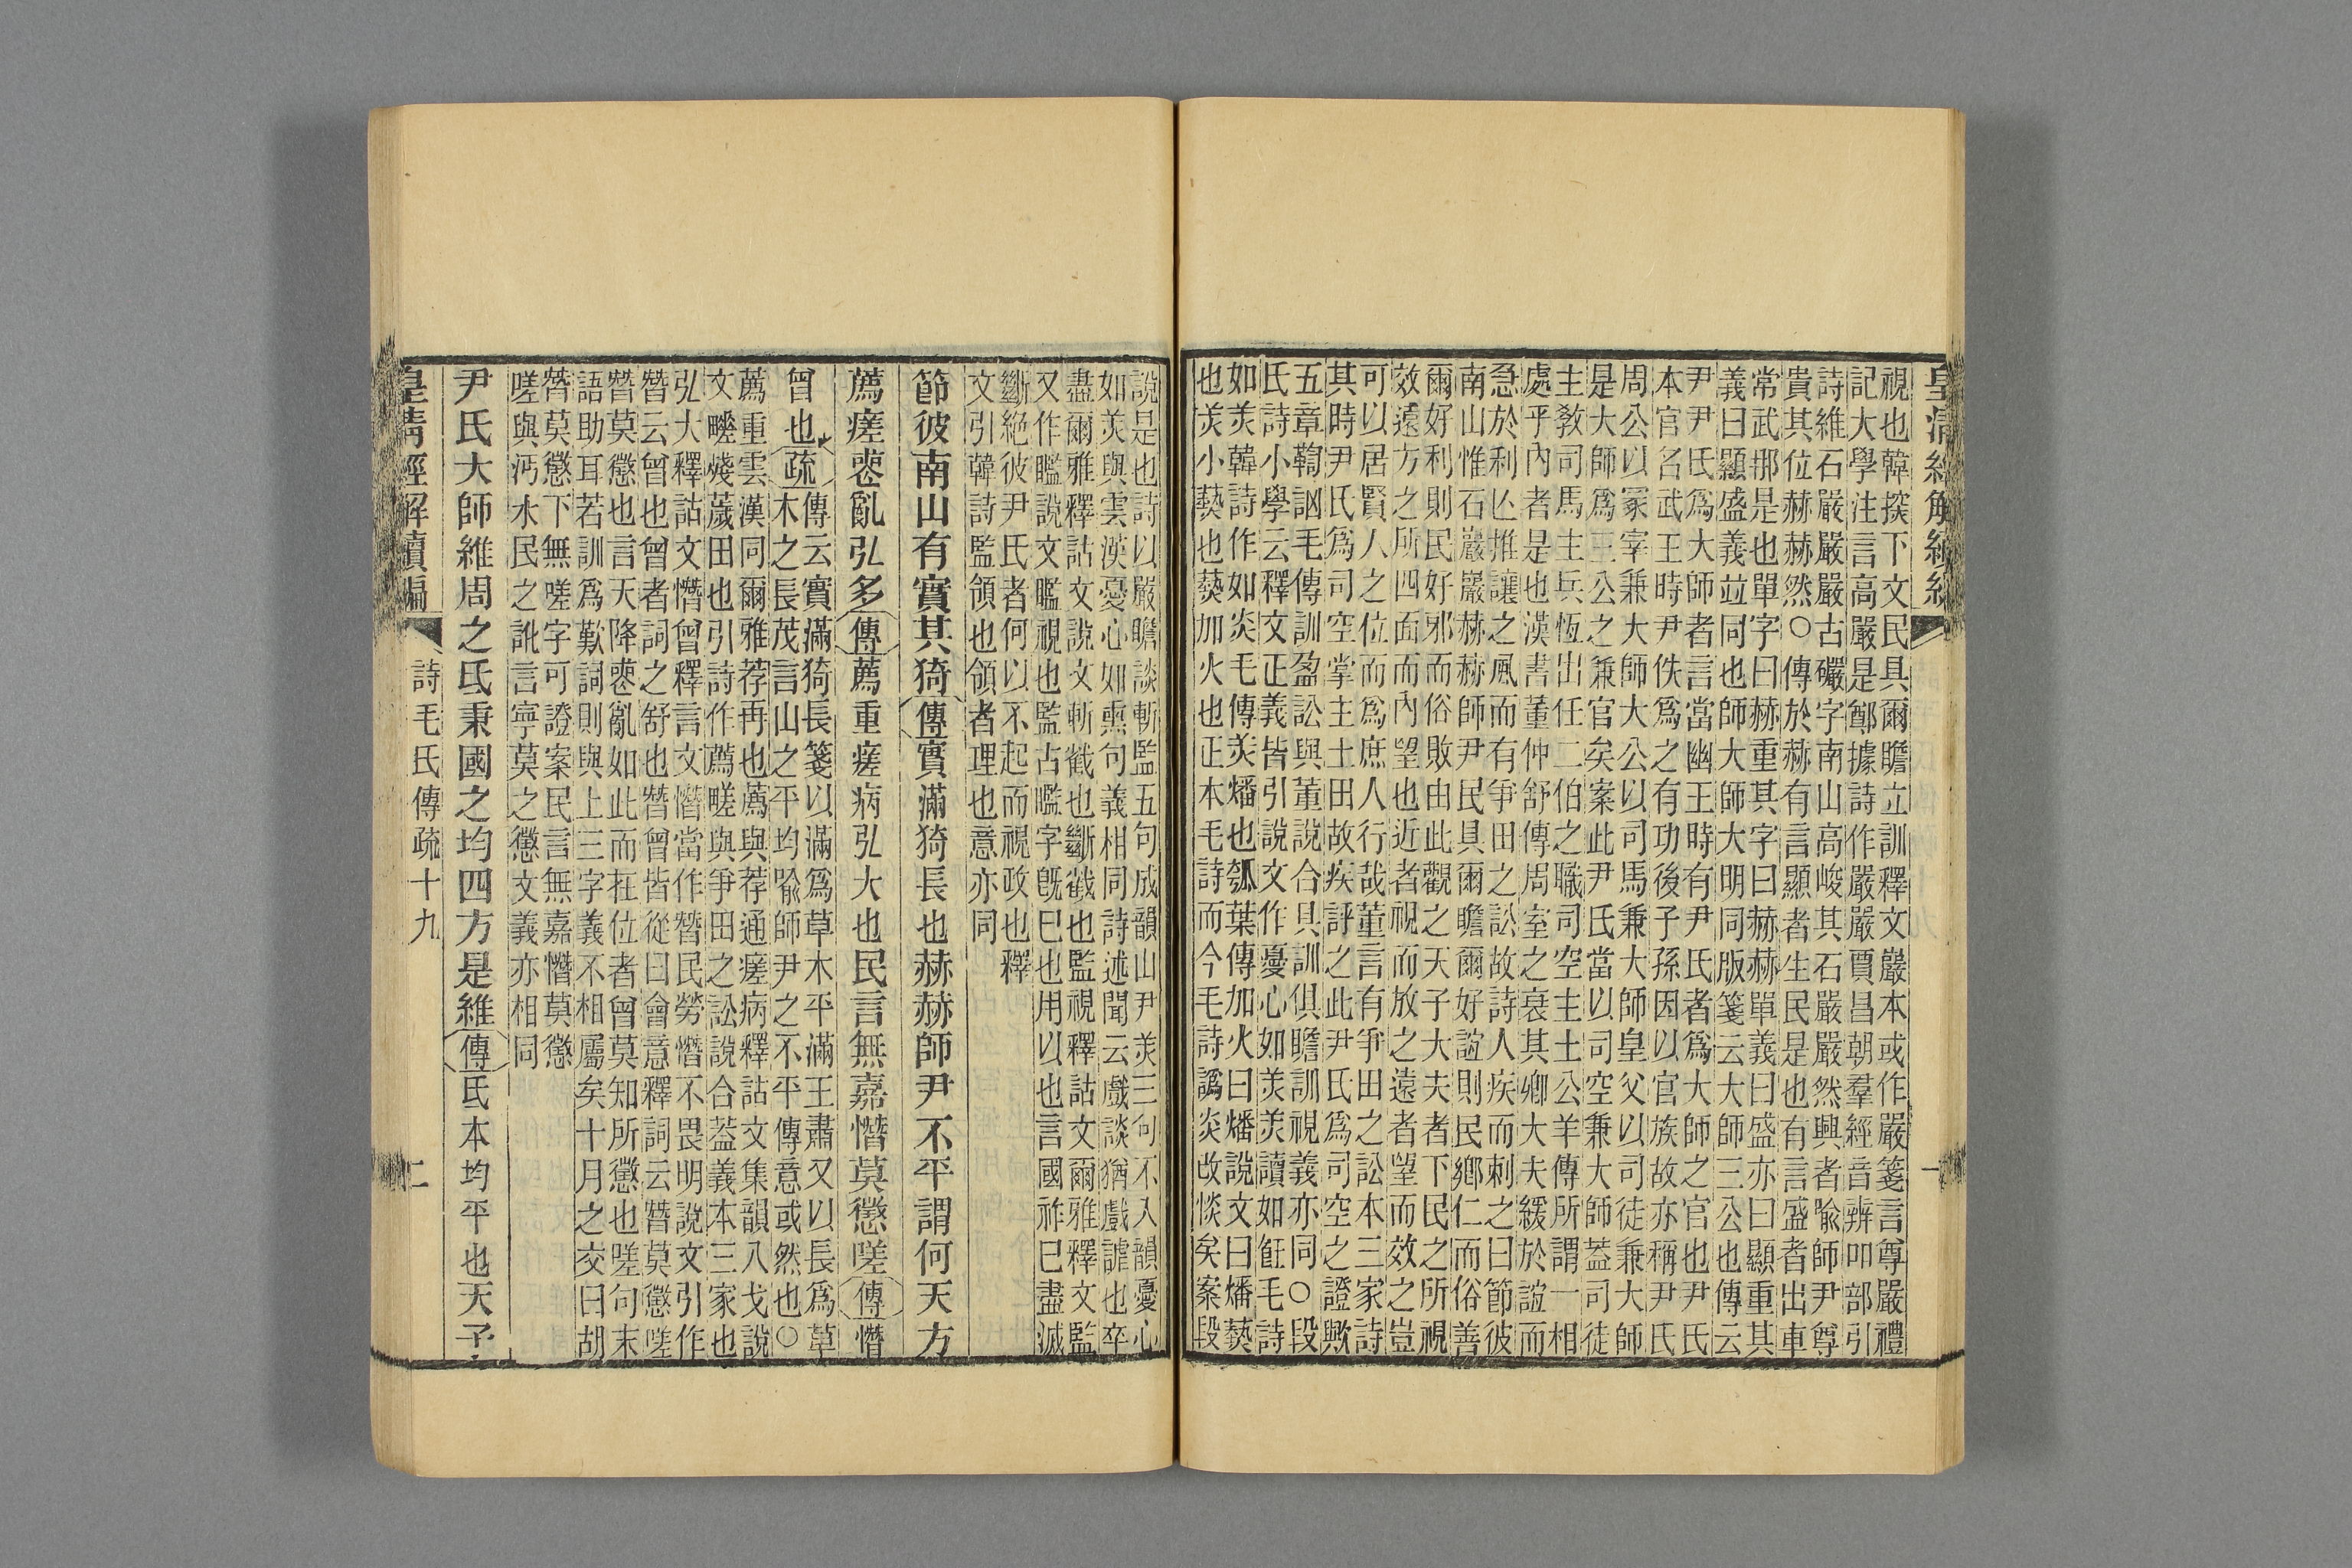 皇清經解續編　一
視也韓揆下文民具爾瞻立訓釋文巖本或作嚴箋言尊嚴禮
記大學注言高嚴是鄭據詩作嚴嚴賈昌朝羣經音辨吅部引
詩維石嚴嚴古礹字南山高峻其石嚴嚴然興者喻師尹尊
貴其位赫赫然○傳於赫赫有言顯者生民是也有言盛者出車
常武是也單字曰赫重其字曰赫赫單義曰盛亦曰顯重其
義曰顯盛義竝同也師大師大明同版箋云大師三公也傳云
尹尹氏爲大師者言當幽王時有尹氏者爲大師之官也尹氏
本官名武王時尹佚爲之有功後子孫因以官族故亦稱尹氏
周公以冢宰兼大師大公以司馬兼大師皇父以司徒兼大師
是大師爲三公之兼官矣案此尹氏當以司空兼大師葢司徒
主敎司馬主兵恆出任二伯之職司空主土公羊傳所謂一相
處乎內者是也漢書董仲舒傳周室之衰其卿大夫緩於誼而
急於利亾推讓之風而有爭田之訟故詩人疾而刺之曰節彼
南山惟石巖巖赫赫師尹民具爾瞻爾好誼則民鄉仁而俗善
爾好利則民好邪而俗敗由此觀之天子大夫者下民之所視
效遠方之所四面而內望也近者視而放之遠者望而效之豈
可以居賢人之位而爲庶人行哉董言有爭田之訟本三家詩
其時尹氏爲司空掌主土田故疾評之此尹氏爲司空之證歟
五章鞫訩毛傳訓盈訟與董說合具訓俱瞻訓視義亦同○段
氏詩小學云釋文正義皆引說文作憂心如㶣㶣讀如飪毛詩
如㶣韓詩作如炎毛傳㶣燔也瓠葉傳加火曰燔說文曰燔爇
也㶣小爇也爇加火也正本毛詩而今毛詩譌炎改惔矣案段
說是也詩以嚴瞻談斬監五句成韻山尹㶣三句不入韻憂心
如㶣與雲漢憂心如熏句義相同詩述聞云戲談猶戲謔也卒
盡爾雅釋詁文說文斬截也斷截也監視釋詁文爾雅釋文監
又作㬝說文㬝視也監古㬝字旣已也用以也言國祚已盡滅
斷絕彼尹氏者何以不起而視政也釋
文引韓詩監領也領者理也意亦同
節彼南山有實其猗傳實滿猗長也赫赫師尹不平謂何天方
薦瘥喪亂弘多傳薦重瘥病弘大也民言無嘉憯莫懲嗟傳憯
曾也疏傳云實滿猗長箋以滿爲草木平滿王肅又以長爲草
木之長茂言山之平均喻師尹之不平傳意或然也○
薦重雲漢同爾雅荐再也薦與荐通瘥病釋詁文集韻八戈說
文㽨殘薉田也引詩作薦㽨與爭田之訟說合葢義本三家也
弘大釋詁文憯曾釋言文憯當作朁民勞憯不畏明說文引作
朁云曾也曾者詞之舒也朁曾皆從曰會意釋詞云朁莫懲嗟
朁莫懲也言天降喪亂如此而在位者曾莫知所懲也嗟句末
語助耳若訓爲歎詞則與上三字義不相屬矣十月之交曰胡
朁莫懲下無嗟字可證案民言無嘉憯莫懲
嗟與沔水民之訛言寧莫之懲文義亦相同
尹氏大師維周之氐秉國之均四方是維傳氐本均平也天子
皇清經解續編　詩毛氏傳疏十九　二